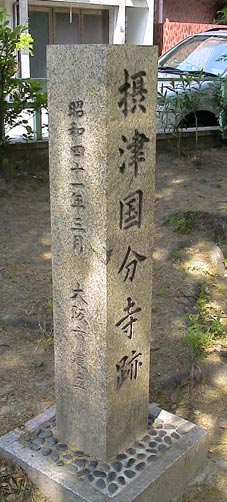 摂津国分寺跡
昭和四十一年三月 大阪市建立